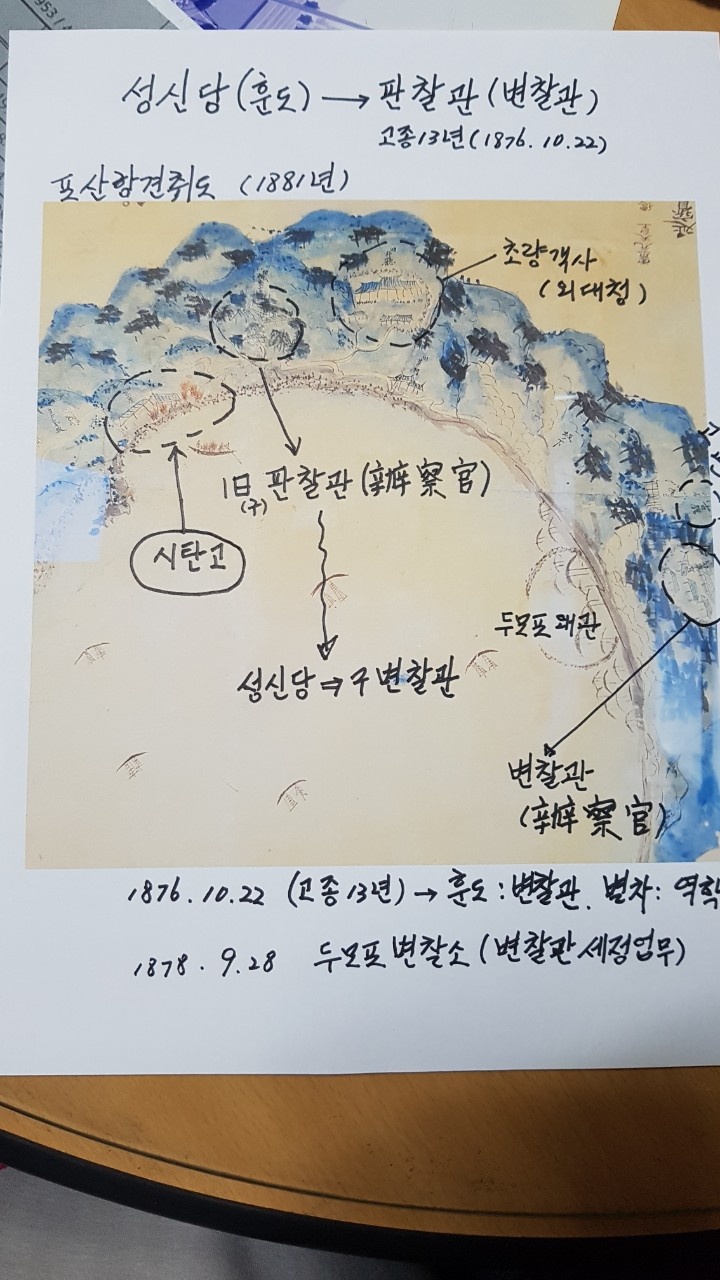 성신당(훈도) → 판찰관(변찰관)
고종13년(1876.10.22)
포산항견취도 (1881년)
초량객사
(외대청)
旧판찰관(辦察官)
(구)
시탄고
두모포왜관
성신당⇒구변찰관
변찰관
(辦察官)
1876.10.22 (고종13년) → 훈도:변찰관. 별차: 역학
1878.9.28 두모포변찰소(변찰관세정업무)
953/